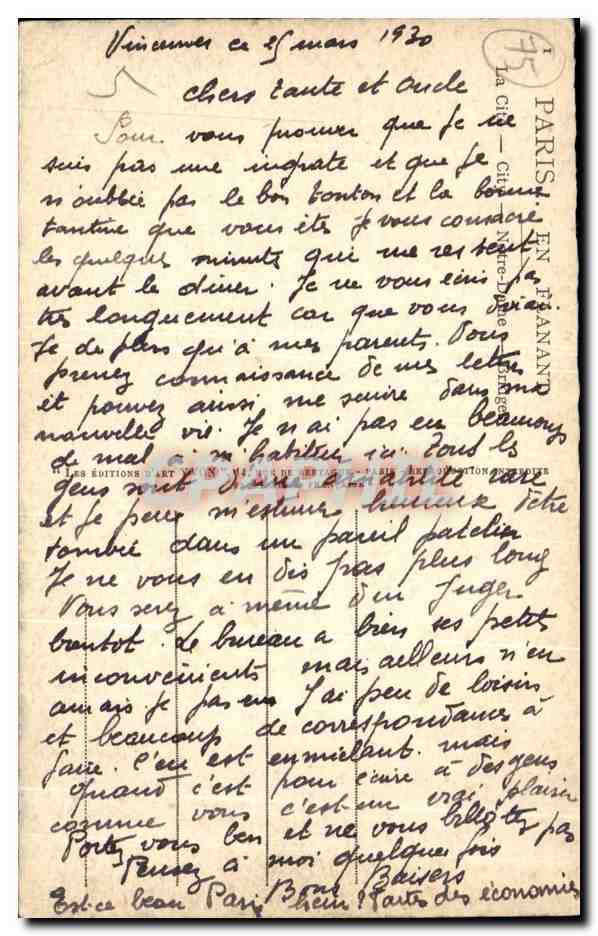 Vincennes ce 25 mars 1930
Chers tante et Oncle
Pour vous prouver que je ne
suis pas une ingrate et que je
n'oublie pas le bon tonton et la bonne
tantine que vous êtes je vous consacre
les quelques minutes qui me restent
avant le dîner. Je ne vous écris pas
très longuement car que vous dirai-
Je de plus qu'à mes parents. Vous
prenez connaissance de mes lettres
et pouvez ainsi me suivre dans ma
nouvelle vie. Je n'ai pas eu beaucoup
de mal à m'habituer ici tous les
gens sont d'une amabilité rare
et je peux m'estimer heureux d'être
tombée dans un pareil patelin
Je ne vous en dis pas plus long
Vous serez à même d'en juger
bientot. Le bureau a bien ses petits
inconvénients mais ailleurs n'en
aurais je pas eu J'ai peu de loisirs
et beaucoup de correspondances à
faire. C'en est enmielant. mais
quand c'est pour écrire à des gens
comme vous c'est un vrai plaisir
Portez vous bien et ne vous pas
Pensez à moi quelque fois
Bons Baisers
Est-ce beau Paris hein? Faites des économies
75
PARIS... EN FLANANT
La Cité — Cité — Notre-Dame
LES ÉDITIONS D'ART YVON, RUE DE BRETAGNE - PARIS - REPRODUCTION INTERDITE